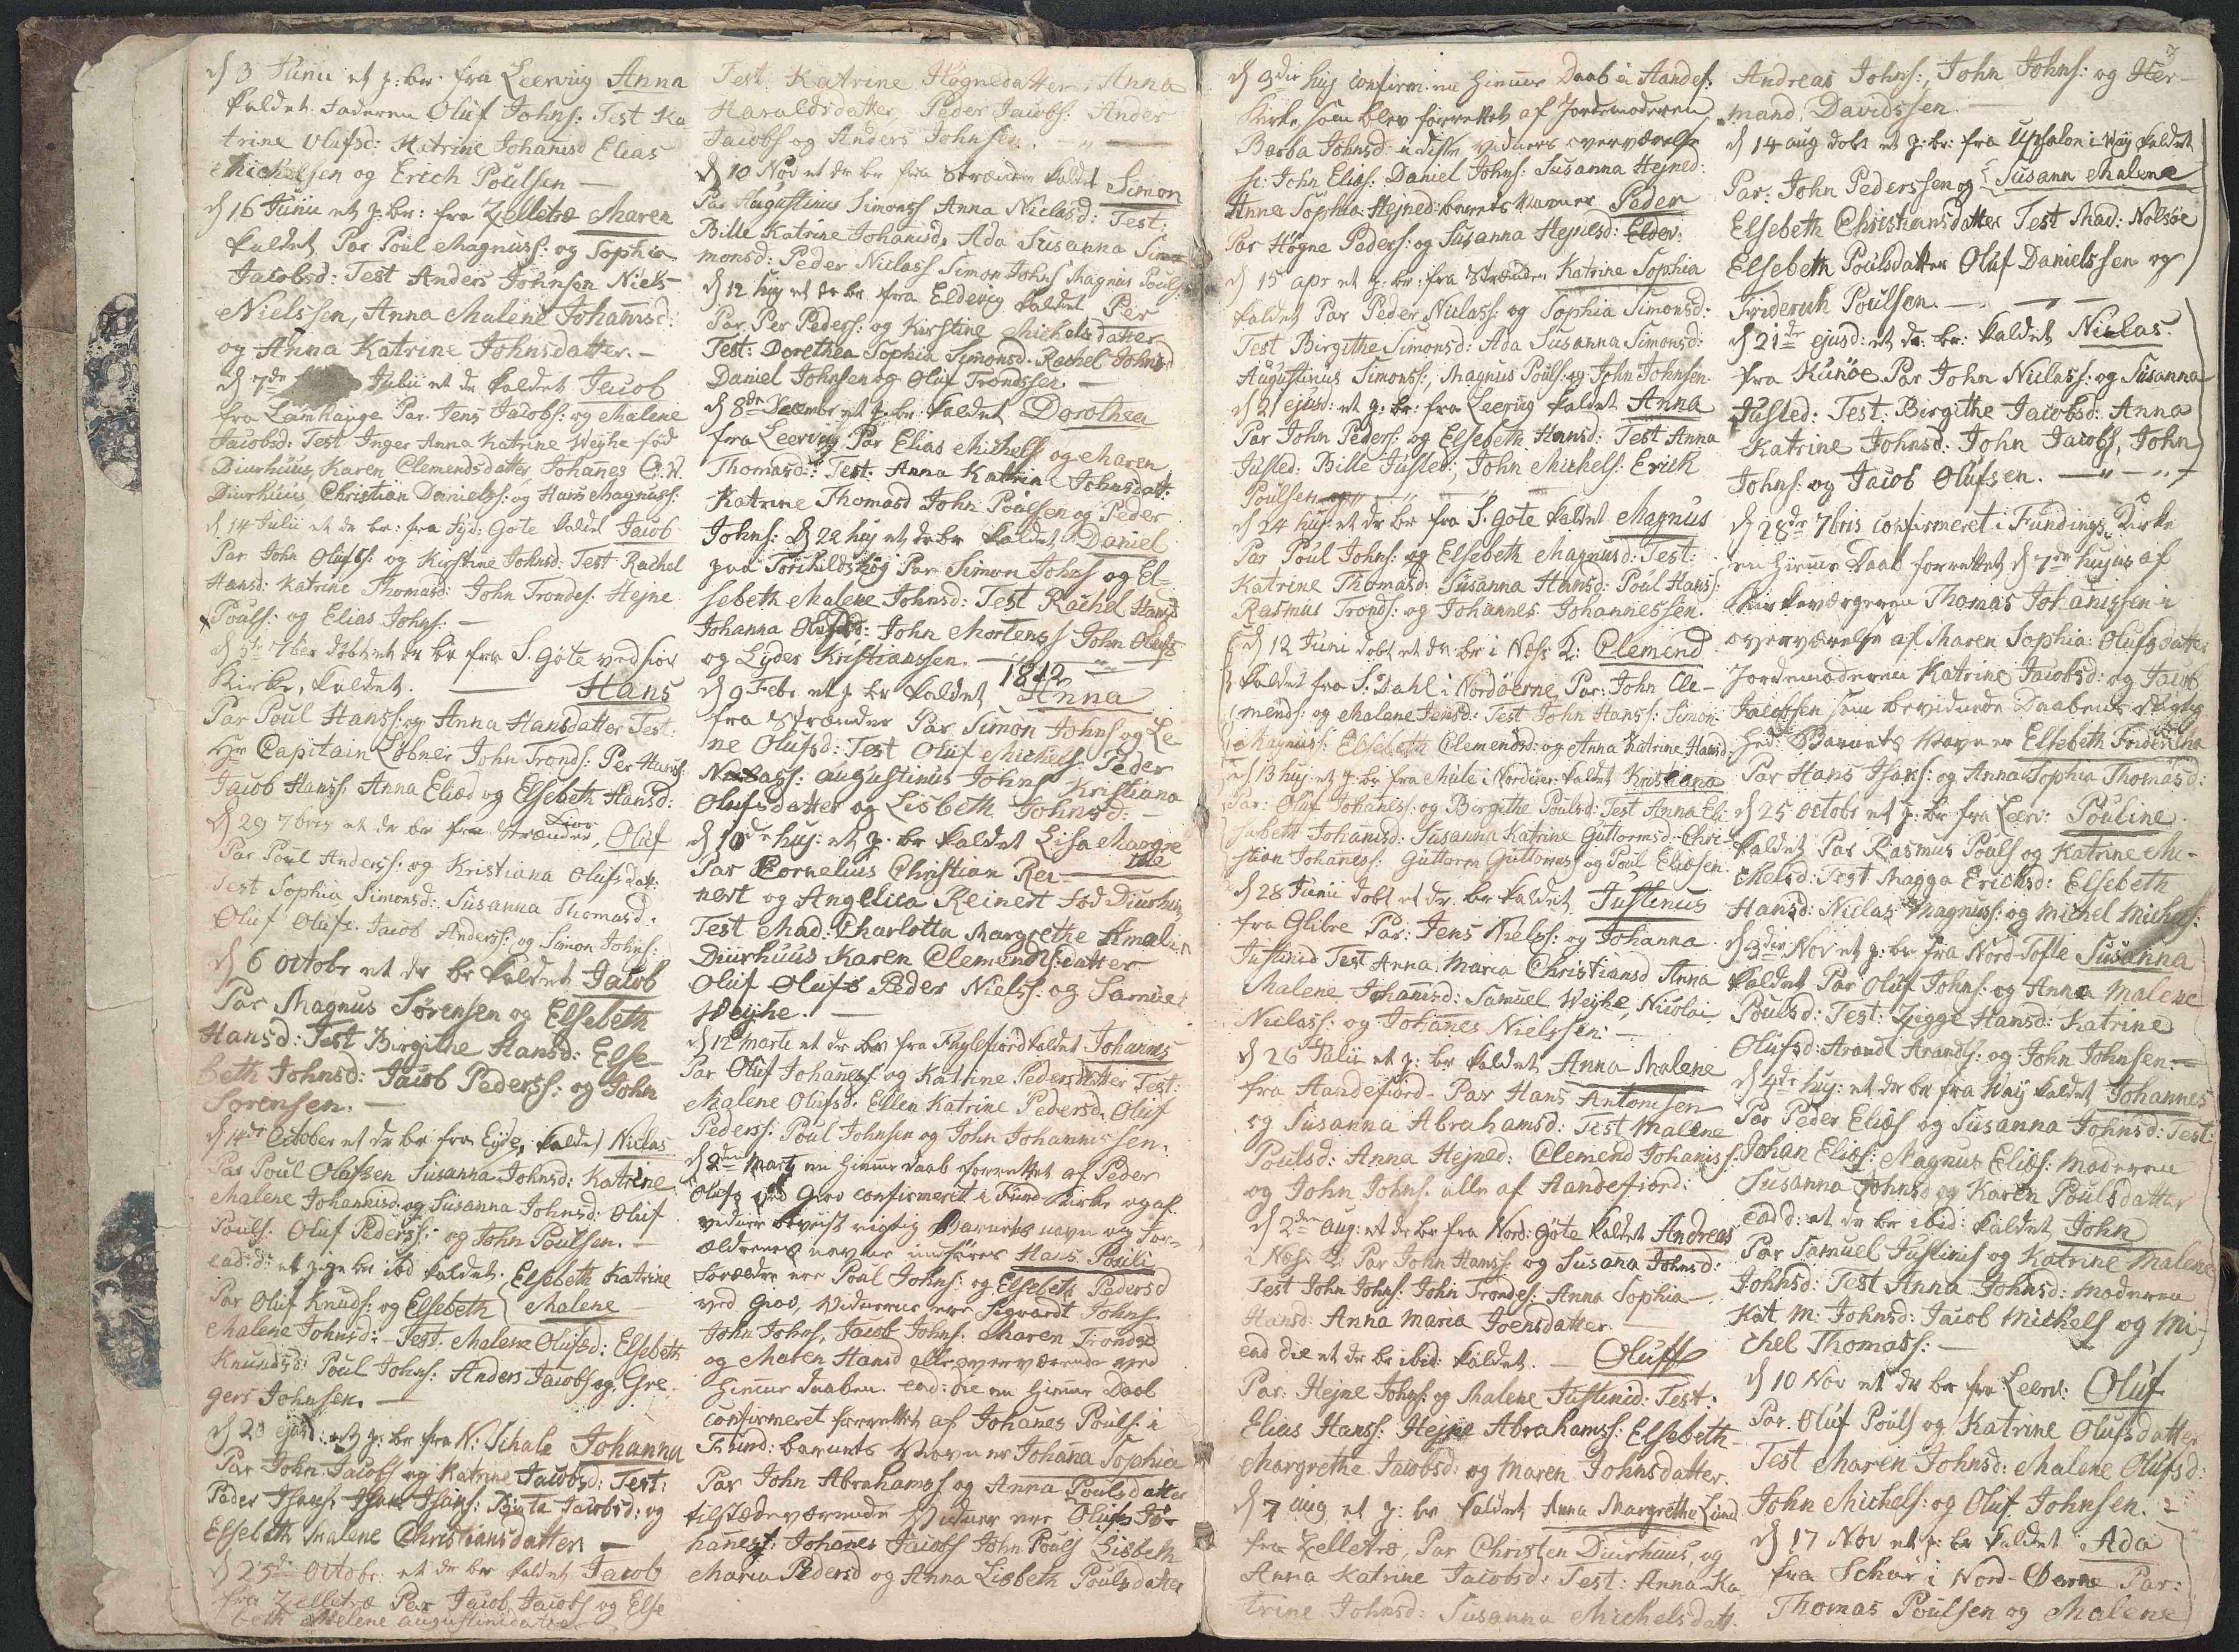 d 3 Junii et p: br: fra Leervig Anna
kaldet. Faderen Oluf Johns: Test Ka-
trine Olufsd: Katrine Johannisd Elias
Michelsen og Erich Poulsen —
d 16 Junii et p: br: fra Zelletræ Maren
kaldet Par Poul Magnuss: og Sophia
Jacobsd: Test Anders Johnsen Niels
Nielssen, Anna Malene Johannisd:
og Anna Katrine Johnsdatter. —
d 7de Julii et dr kaldet Jacob
fra Lamhauge Par. Jens Jacobs: og Malene
Jacobsd: Test Inger Anna Katrine Wejhe fød
Diurhuus, Karen Clemendsdatter, Johanes
Diurhuus, Christian Daniels: og Hans Magnuss:
d 14 Julii et dr br: fra Syd: Gote kaldet Jacob
Par John Olufs: og Kirstine Johnsd: Test Rachel
Hansd: Katrine Thomasd: John Trondes: Hejne
Pouls: og Elias Johns: —
d 7ber døbt et dr br fra S. Gøte ved
Kirke, kaldet. — Hans
Par Poul Hanss: og Anna Hansdatter Test:
Hr Capitain Løbner John Tronds: Per Hans:
Jacob Hanss: Anna Eliæd og Elsebeth Hansd:
d 29 7bris et dr br fra Strænder, Oluf
Par Poul Anderss: og Kristiana Olufsdat:
Test Sophia Simonsd: Susanna Thomasd.
Oluf Olufs. Jacob Anderss: og Simon Johns:
d 6 octobr et dr br kaldet Jacob
Par Magnus Sørensen og Elsebeth
Hansd: Test Birgithe Hansd: Else-
beth Johnsd: Jacob Pederss: og John
Sørensen. —
d 14de October et dr br fra Eyde, kaldet Niclas
Par Poul Olufsen Susanna Johnsd: Katrine
Malene Johannisd. og Susanna Johnsd. Oluf
Pouls: Oluf Pederss: og John Poulsen. —
ead: d: et pige br ibd kaldet. Elsebeth Katrine
Par Oluf Knuds: og Elsebeth Malene
Malene Johnsd: — Test. Malene Olufsd: Elsebeth
Knudsd: Poul Johns: Anders Jacobs og Gre-
gers Johnsen. —
d 20 ejusd: et p: br fra N: Schale Johanna
Par John Jacobs og Katrine Jacobsd: Test:
Peder Isaks: Isak Isaks: Birita Jacobsd: og
Elsebeth Malene Christiansdatter. —
d 25de Octobr: et dr br kaldet Jacob
fra Zelletræ Par Jacob Jacobs og Else
beth Malene augustinidatter
Test Katrine Høgnedatter. Anna
Haraldsdatter, Peder Jacobs: Ander
Jacobs og Anders Johnsen. — " —
d 10 Nov et dr br fra Strænder kaldet Simon
Par Augustinus Simonss Anna Niclasd: Test:
Bille Katrine Johanisd, Ada Susanna Simo
monsd: Peder Niclass Simon Johns Magnus Pouls:
d 12 huj et dr br fra Eldevig kaldet Per
Par. Per Peders: og Kirstine Michelsdatter
Test: Dorethea Sophia Simonsd. Rachel Johnsd
Daniel Johnsen og Oluf Trondssen. —
d 8de Decembr et p: br. kaldet Dorothea
fra Leervig Par Elias Michels og Maren
Thomasd:: Test. Anna Katrine Johnsdatt:
Katrine Thomasd John Poulsen og Peder
Johns: d 22 huj et dr br kaldet Daniel
paa Torkildshøg Par Simon Johns og El-
sebeth Malene Johnsd: Test Rachel Hansd
Johanna Olufsd: John Mortens John Olufs
og Lyder Kristianssen. —
1812
d 9 Febr. et p br kaldet Anna
fra Strænder Par Simon Johns og Le-
ne Olufsd: Test Oluf Michels Peder
Niclass: augustinus Johns Kristiana
Olufsdatter og Lisbeth Johnsd: —
d 10de huj: et p. br kaldet Lisa Margre
the
Par Cornelius Christian Rei-
nert og Angelica Reinert fød Diurhuus
Test Mad: Charlotta Margrethe Amalia
Diurhuus Karen Clemendsdatter
Oluf Olufs Peder Nielss: og Samuel
Wejhe. —
d 12 Marti et dr br fra Fuglefiord kaldet Johannes
Par Oluf Johaness: og Katrine Pedersdatter Test:
Malene Olufsd. Ellen Katrine Pedersd. Oluf
Pederss: Poul Johnsen og John Johannissen.
d 2den Marty en hiemmedaab forrettet af Peder
Olufs ved Giov confirmeret i Fund: Kirke og af
vidner bevist rigtig Barnets navn og For-
ældrenes navne indføres Hans Pouli
Forældre ere Poul Johns: og Elsebeth Pedersd
ved Giov, Vidnerne ere Sigvardt Johns.
John Johns, Jacob Johns: Maren Trondsd
og Maren Hansd alle overværende ved
hiemme daaben. ead: die en hiemme Daab
confirmeret forrettet af Johanes Pouls: i
Fund: barnets Navn er Johana Sophia
Par John Abrahams og Anna Poulsdatter
tilstædeværende Vidner ere Olufs Jo-
hanes: Johanes Jacobs John Pouls Lisbeth
Maria Pedersd og Anna Lisbeth Poulsdatter
d 3die huj confirm. en hiemme Daab i Andef:
Kirke, som blev forrettet af Jordemoderen
Barba Johnsd: i disse vidners overværelse
n: John Elias: Daniel Johns: Susanna Hejned:
Anna Sophia Hejned: barnets Navner Peder
Par Høgne Peders: og Susanna Hejnesd: Eldev:
d 15 apr et p: br: fra Strænder Katrine Sophia
kaldet Par Peder Niclass: og Sophia Simonsd:
Test Birgithe Simonsd: Ada Susanna Simonsd:
Augustinus Simonss:, Magnus Pouls: og John Johnsen.
d 21 ejusd: et p: br: fra Leervig kaldet Anna
Par John Peders: og Elsebeth Hansd: Test Anna
Justed: Bille Justed:, John Michels: Erick
Poulsen
d 24 huj: et dr br fra S. Gote kaldet Magnus
Par Poul Johns: og Elsebeth Magnusd: Test:
Katrine Thomasd: Susanna Hansd: Poul Hans:
Rasmus Tronds: og Johannes Johannessen.
d 12 Junii døbt et dr: br i Næss K: Clemend
kaldet fra S. Dahl i Nordøerne, Par: John Cle-
mends: og Malene Jensd: Test John Hanss: Simon
Magnus: Elsebeth Clemendsd: og Anna Katrine Hansd:
d 13 huj et p: br fra Mule i Nordøer: kaldet Kristiana
Par: Oluf Johaness: og Birgithe Poulsd: Test Anna Eli-
sabeth Johannisd: Susanna Katrine Guttormsd: Chri-
stian Johaness: Guttorm Guttorms og Poul Eliæsen.
d 28 Junii døbt et dr. br. kaldet Justinus
fra Glibre Par: Jens Niels: og Johanna
Justinid Test Anna Maria Christiansd Anna
Malene Johannisd: Samuel Wejhe, Nicolai
Niclass: og Johanes Nielssen: —
d 26 Julii et p: br kaldet Anna Malene
fra Andefiord — Par Hans Antonisen
og Susanna Abrahamsd: Test Malene
Poulsd: Anna Hejned: Clemend Johaniss:
og John Johns: alle af Andefiord:
d 2den Aug: et dr br fra Nord: Gøte kaldet Andreas
i Næss K: Par John Hanss: og Susana Johnsd:
Test John Johns: John Trondes: Anna Sophia
Hansd: Anna Maria Joensdatter. —
ead die et dr br ibid: kaldet. — Oluff
Par: Hejne Johns: og Malene Justinid: Test:
Elias Hanss: Hejne Abrahamss: Elsebeth
Margrethe Jacobsd: og Maren Johnsdatter.
d 7 Aug et p: br kaldet Anna Margrethe Lund
fra Zelletræ, Par Christen Diurhuus, og
Anna Katrine Jacobsd: Test: Anna Ka
trine Johnsd: Susanna Michelsdatt.
3
Andreas Johns:, John Johns: og Her-
mand, Davidssen. —
d 14 aug døbt et p: br: fra Upsalon i Væj kaldet
Par: John Pederssen og Susann Malene
Elsebeth Christiansdatter Test Mad: Nolsøe
Elsebeth Poulsdatter Oluf Danielssen og
Friderich Poulsen. —
d 21de ejusd: et dr: br: kaldet Niclas
fra Kunøe Par John Niclass: og Susanna
Justed: Test: Birgithe Jacobsd: Anna
Katrine Johnsd: John Jacobs, John
Johns: og Jacob Olufsen. —
d 28de 7bris confirmeret i Fundings Kirke
en hiemme Daab forrettet d 7de hujus af
Kirkeværgeren Thomas Johanissen i
overværelse af Maren Sophia Olufsdatter
Jordemoderen Katrine Jacobsd: og Jacob
Jacobsen som bevidnede Daabens Rigtig
hed: Barnets Navn er Elsebeth Friderikha
Par Hans Isaks: og Anna Sophia Thomasd:
d 25 octobr et p: br fra Leerv: Pouline
kaldet Par Rasmus Pouls og Katrine Mi-
chelsd: Test Magga Ericksd: Elsebeth
Hansd: Niclas Magnuss: og Michel Michels:
d 3die Nov et p: br fra Nord-Tofte Susanna
kaldet Par Oluf Johns: og Anna Malene
Poulsd: Test: Zigge Hansd: Katrine
Olufsd: Arand Arands: og John Johnsen. —
d 4de huj: et dr br fra Waj kaldet Johannes
Par Peder Eliæs og Susanna Johnsd: Test:
Johan Eliæs: Magnus Eliæs: Moderen
Susanna Johnsd og Karen Poulsdatter
ead d: et dr br ibid: kaldet John
Par Samuel Justinis og Katrine Malene
Johnsd: Test Anna Johnsd: Moderen
Kat M: Johnsd: Jacob Michels og Mi-
chel Thomass: —
d 10 Nov et dr br fra Leerv: Oluf
Par. Oluf Pouls og Katrine Olufsdatter
Test Maren Johnsd: Malene Olufsd:
John Michels: og Oluf Johnsen. —
d 17 Nov et p: br kaldet Ada
fra Schor i Nord-Øerne Par:
Thomas Poulsen og Malene